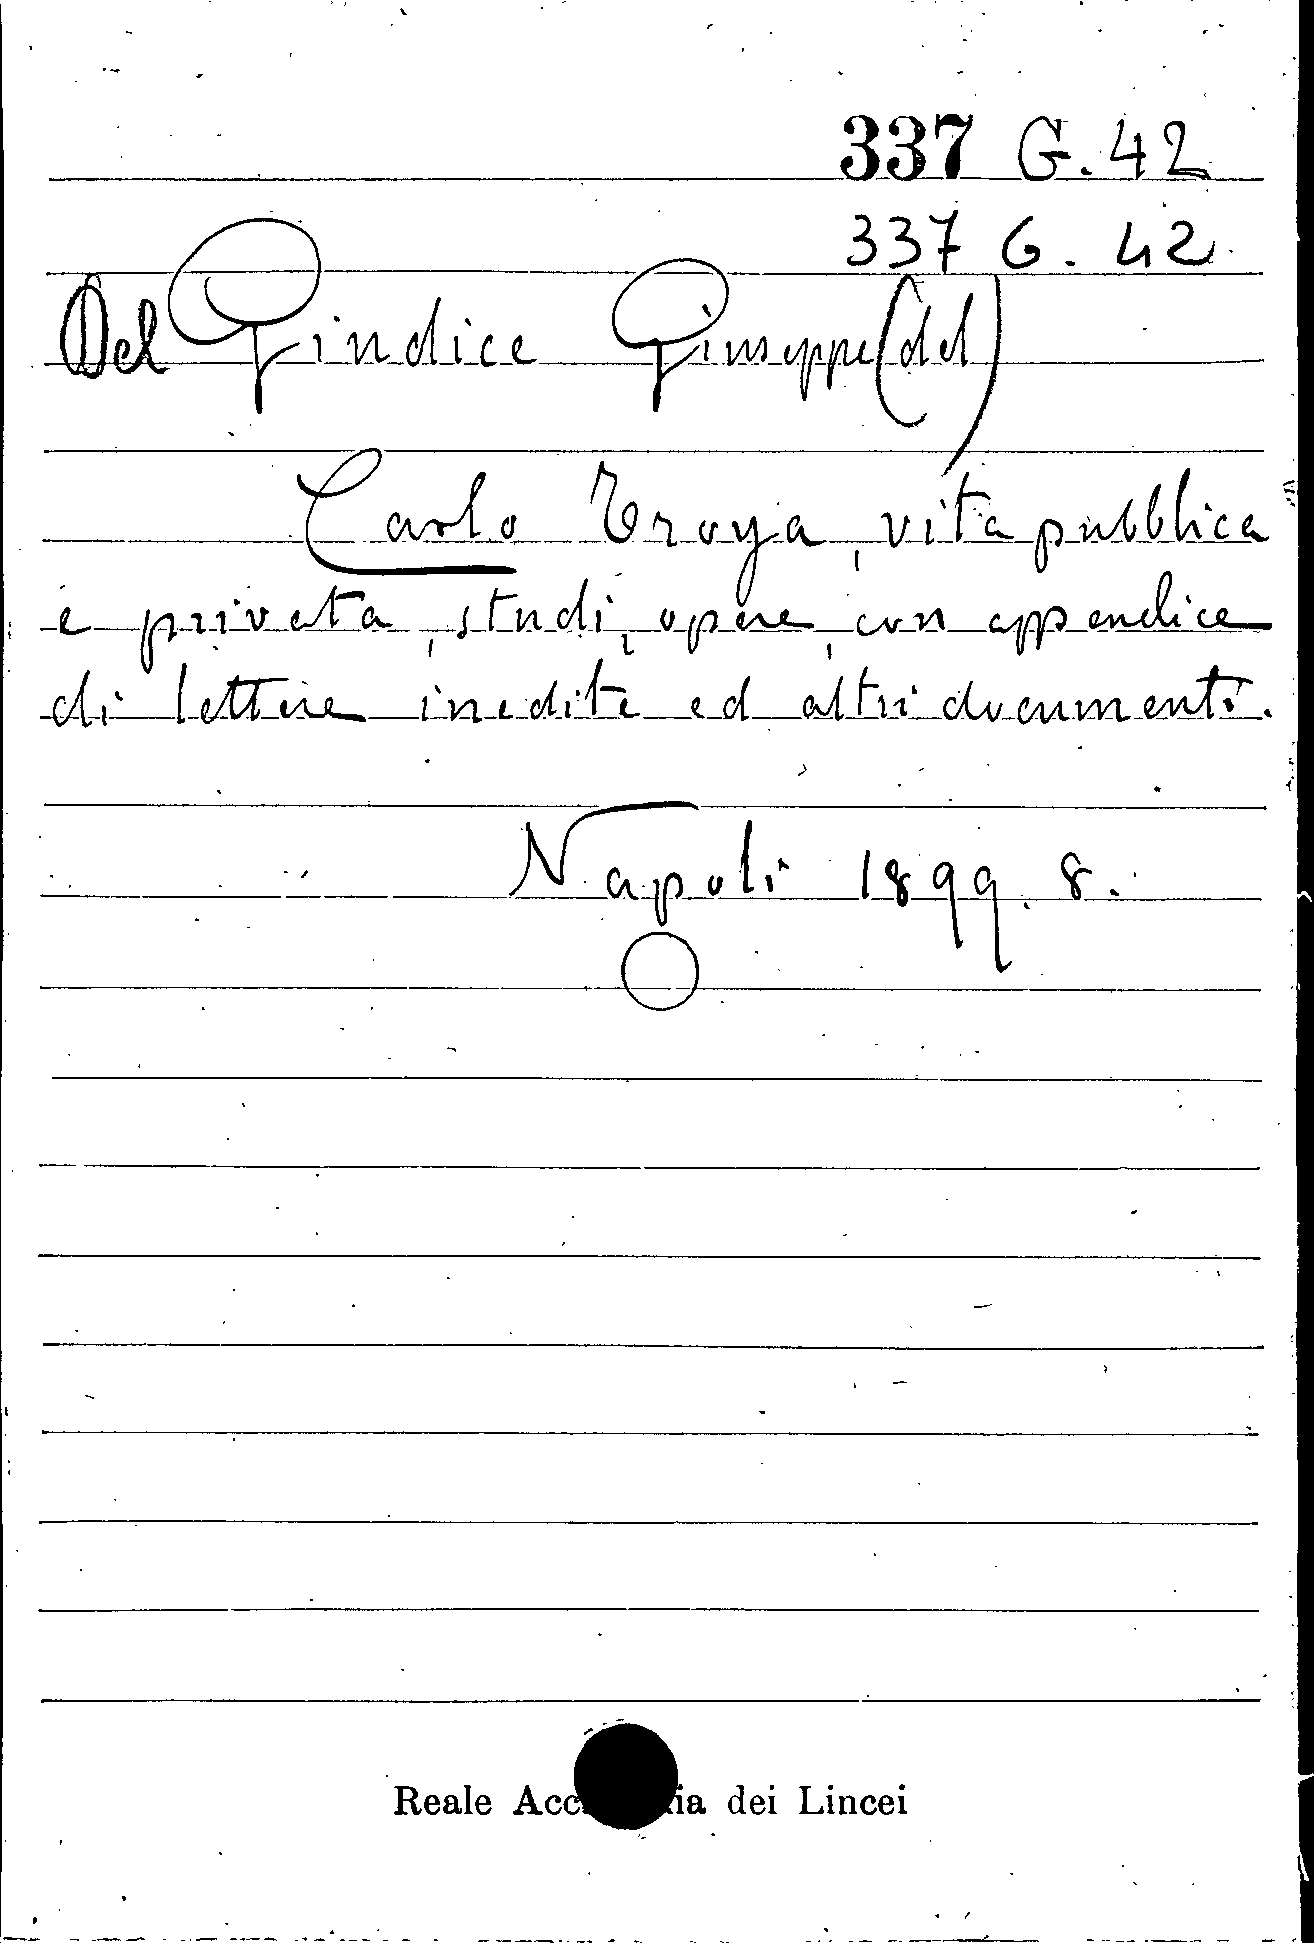 337 G. 42
337 G. 42
Del Giudice Giuseppe (del)
Carlo Troya, vita pubblica
e privata, studi, opere, con appendice
di lettere inedite ed altri documenti.
Napoli 1899. 8.
Reale Acc ia dei Lincei